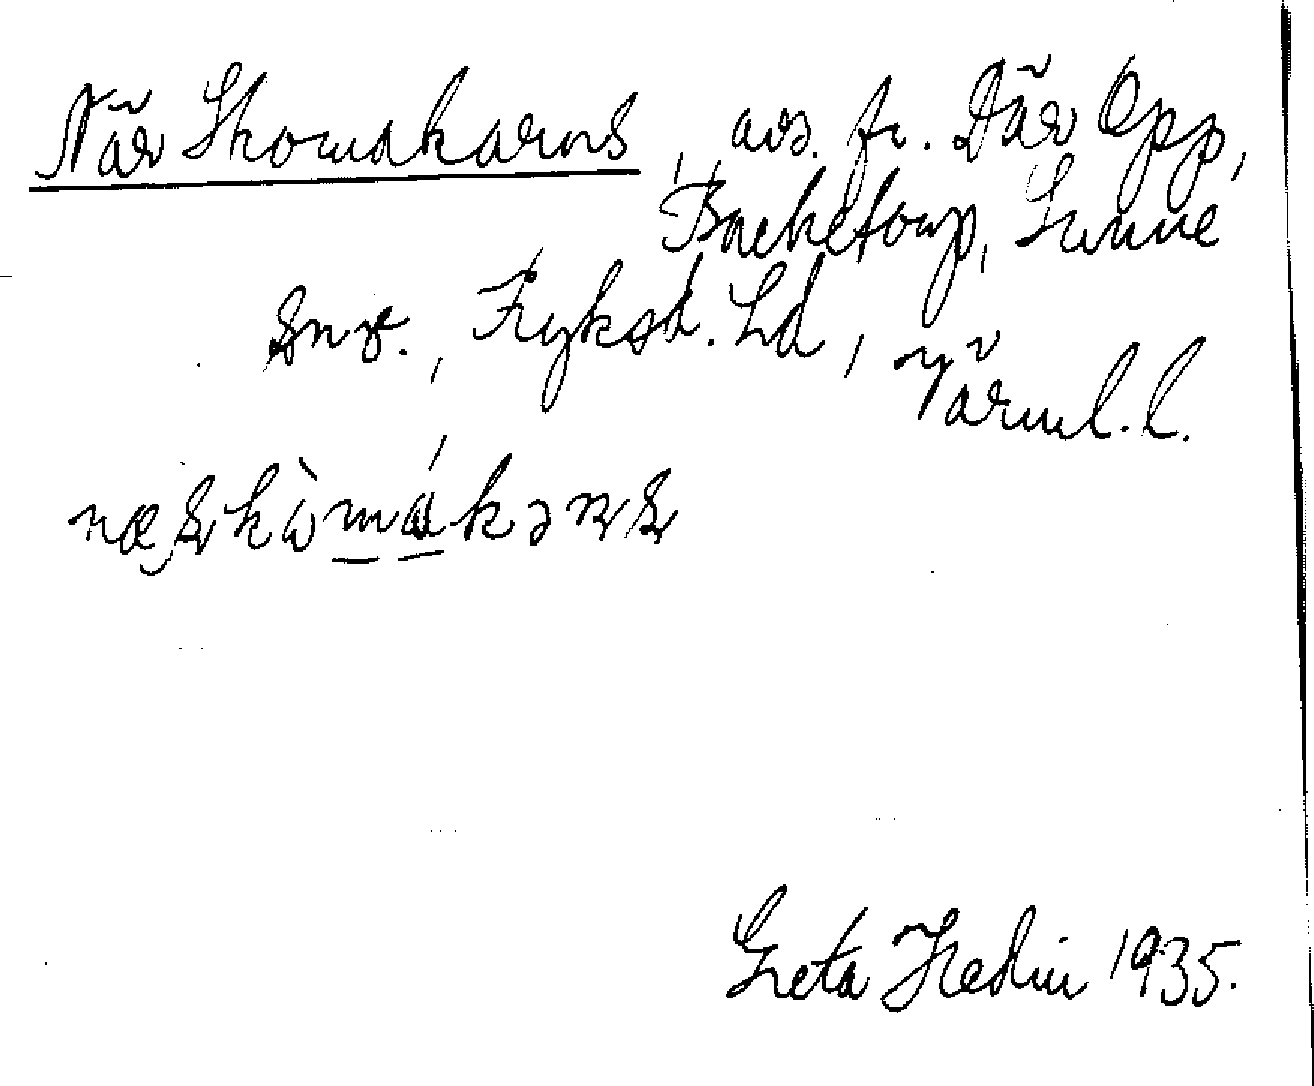 När Skomakarns, avs. fr. Där Opp,
Backetorp, Sunne
Snr., Fryksd. Hd, Värml. l.
Greta Hedin 1935.